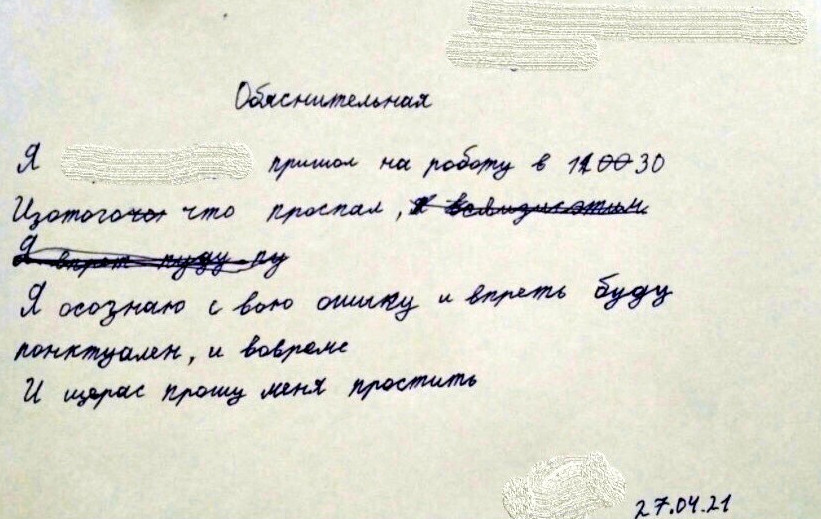 Обяснительная
Я пришол на роботу в 11 30
Изотого что проспал,
Я осознаю с вою ошику и впреть буду
понктуален, и вовремс
И щерас прошу меня простить
27.04.21